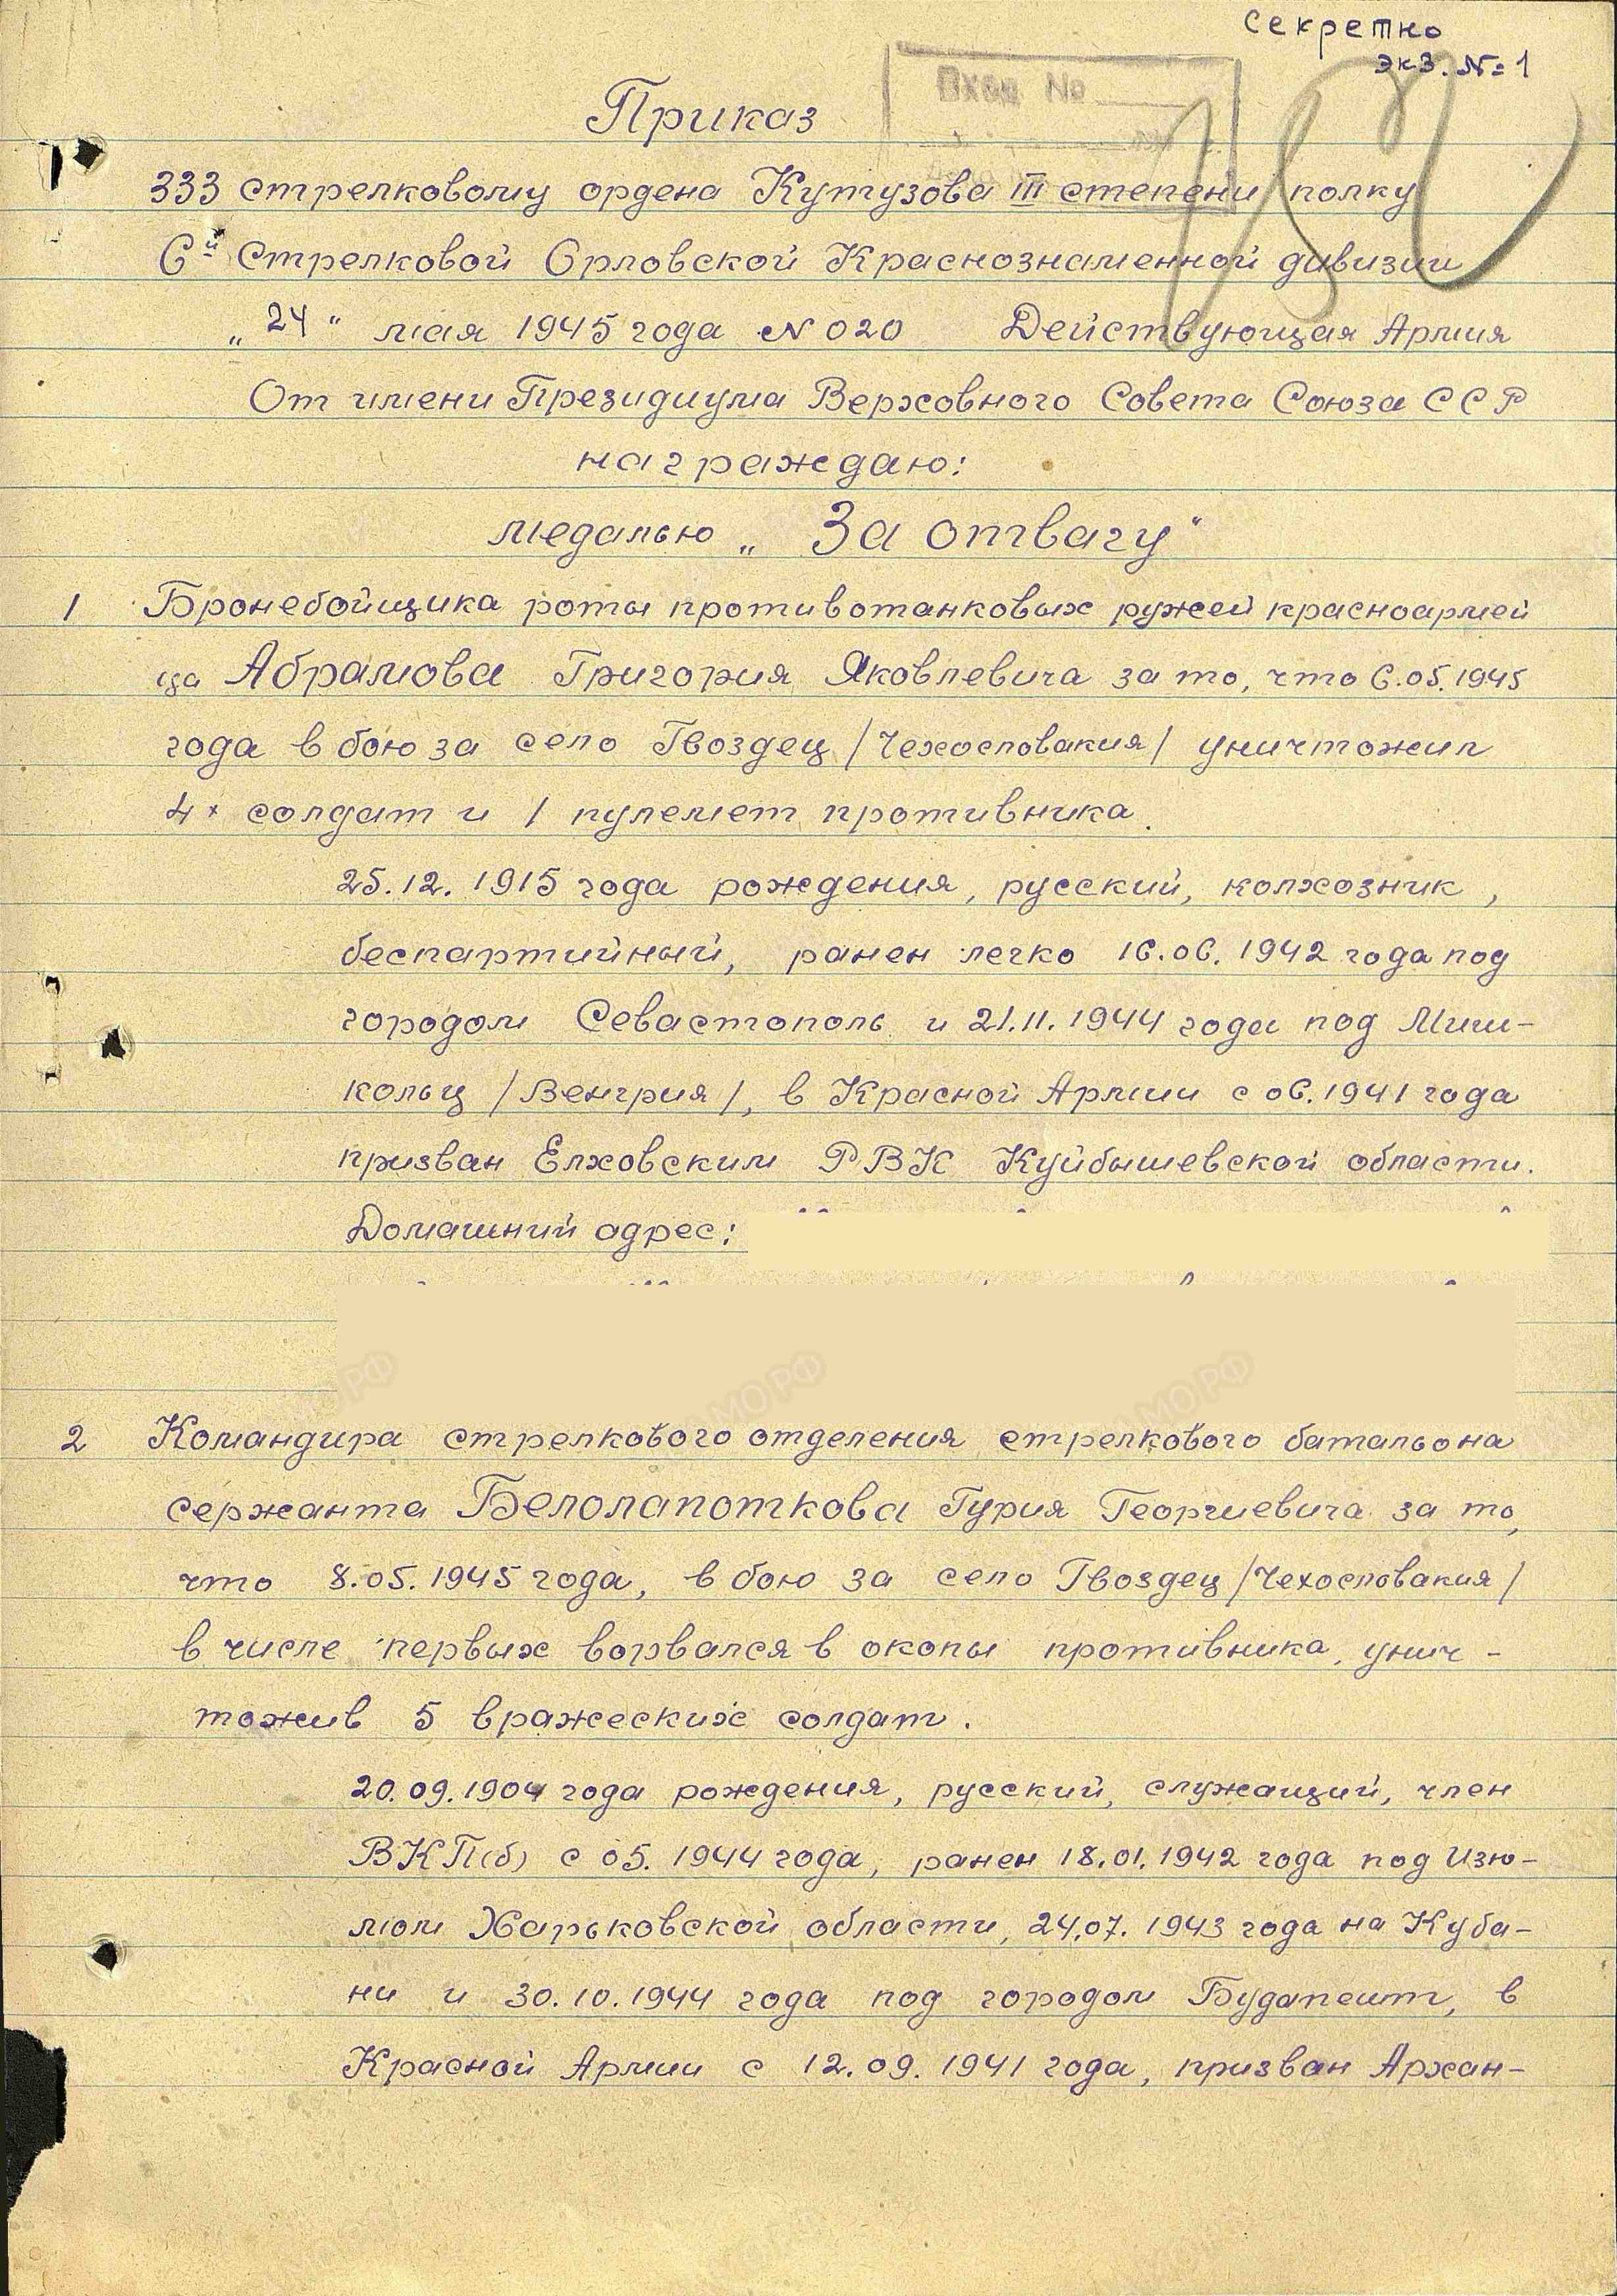 Секретно
экз. №=1
Вход. №
Приказ
333 стрелковому ордена Кутузова III степени полку
6й Стрелковой Орловской Краснознаменной дивизии
„24" мая 1945 года N 020 Действующая Армия
От имени Президиума Верховного Совета Союза ССР
награждаю:
медалью „За отвагу"
1 Бронебойщика роты противотанковых ружей красноармей
ца Абрамова Григория Яковлевича за то, что 6.05.1945
года в бою за село Гвоздец /Чехословакия/ уничтожил
4х солдат и 1 пулемет противника.
25.12.1915 года рождения, русский, колхозник,
беспартийный, ранен легко 16.06.1942 года под
городом Севастополь и 21.11.1944 года под Миш-
кольц /Венгрия/, в Красной Армии с 06.1941 года
призван Елховским РВК Куйбышевской области.
Домашний адрес:
2 Командира стрелкового отделения стрелкового батальона
сержанта Белолапоткова Гурия Георгиевича за то,
что 8.05.1945 года, в бою за село Гвоздец /Чехословакия/
в числе первых ворвался в окопы противника, унич-
тожив 5 вражеских солдат.
20.09.1904 года рождения, русский, служащий, член
ВКП(б) с 05.1944 года, ранен 18.01.1942 года под Изю-
мом Харьковской области, 24.07.1943 года на Куба-
ни и 30.10.1944 года под городом Будапешт, в
Красной Армии с 12.09.1941 года, призван Архан-